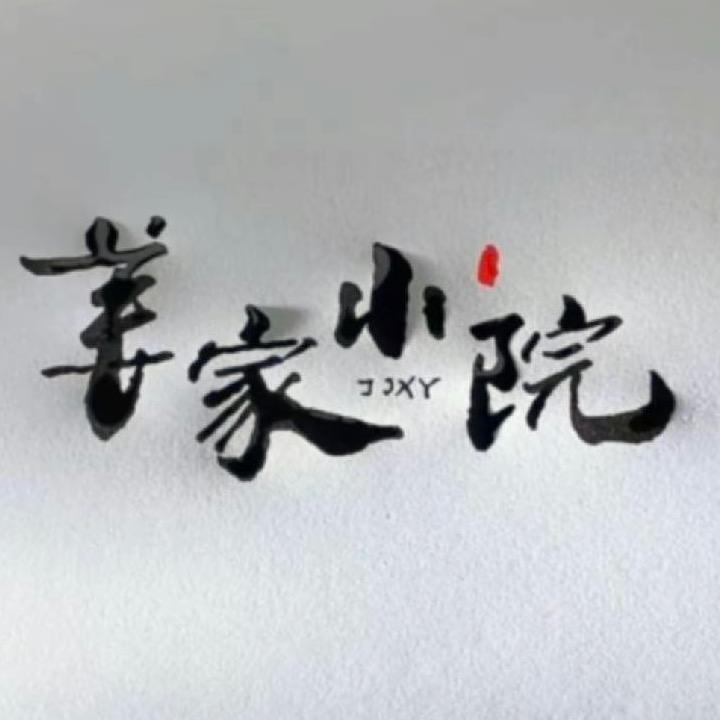 姜家小院
JJXY